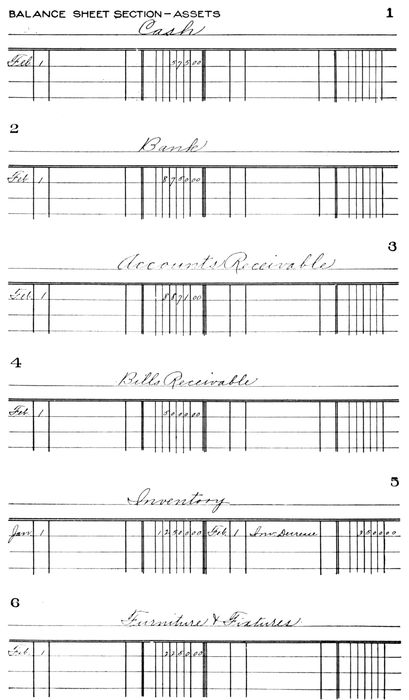 BALANCE SHEET SECTION—ASSETS 1
Cash
Feb. 1 575 00
2
Bank
Feb. 1 8750 00
3
Accounts Receivable
Feb. 1 8871 00
4
Bills Receivable
Feb. 1 5000 00
5
Inventory
Jan. 1 12500 00 Feb. 1 Inv. Decrease 3500 00
6
Furniture & Fixtures
Feb. 1 2250 00